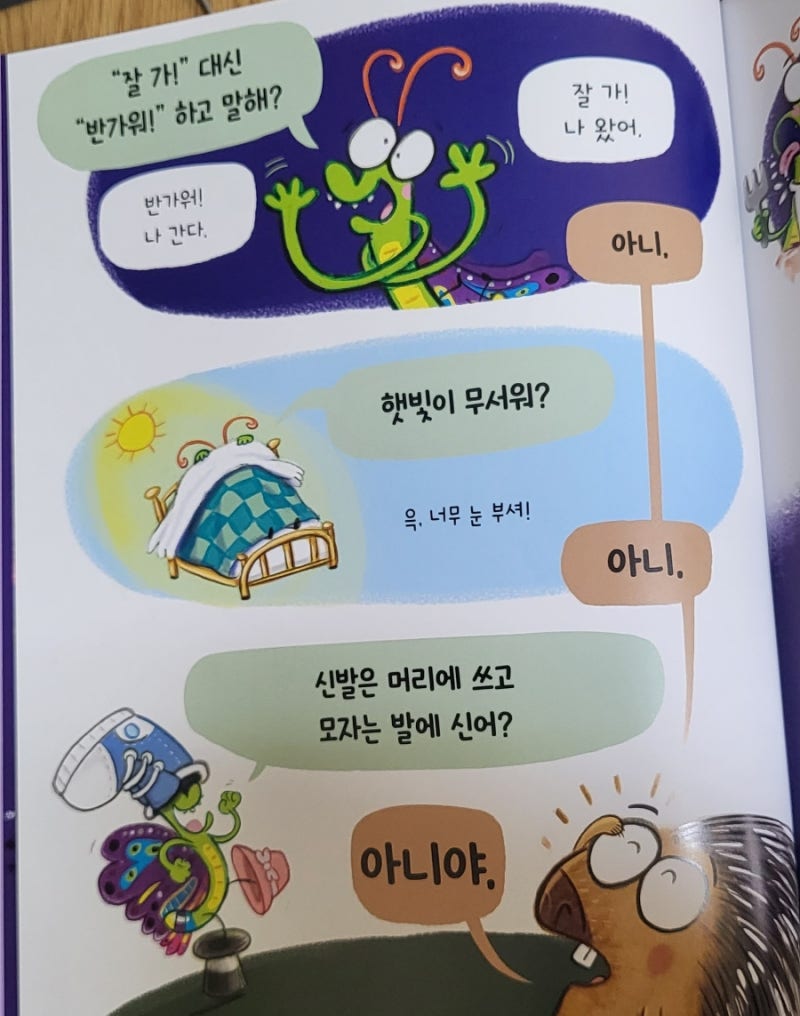 “잘 가!” 대신
“반가워!” 하고 말해?
잘 가!
나 왔어.
반가워!
나 간다.
아니.
햇빛이 무서워?
윽, 너무 눈 부셔!
아니.
신발은 머리에 쓰고
모자는 발에 신어?
아니야.